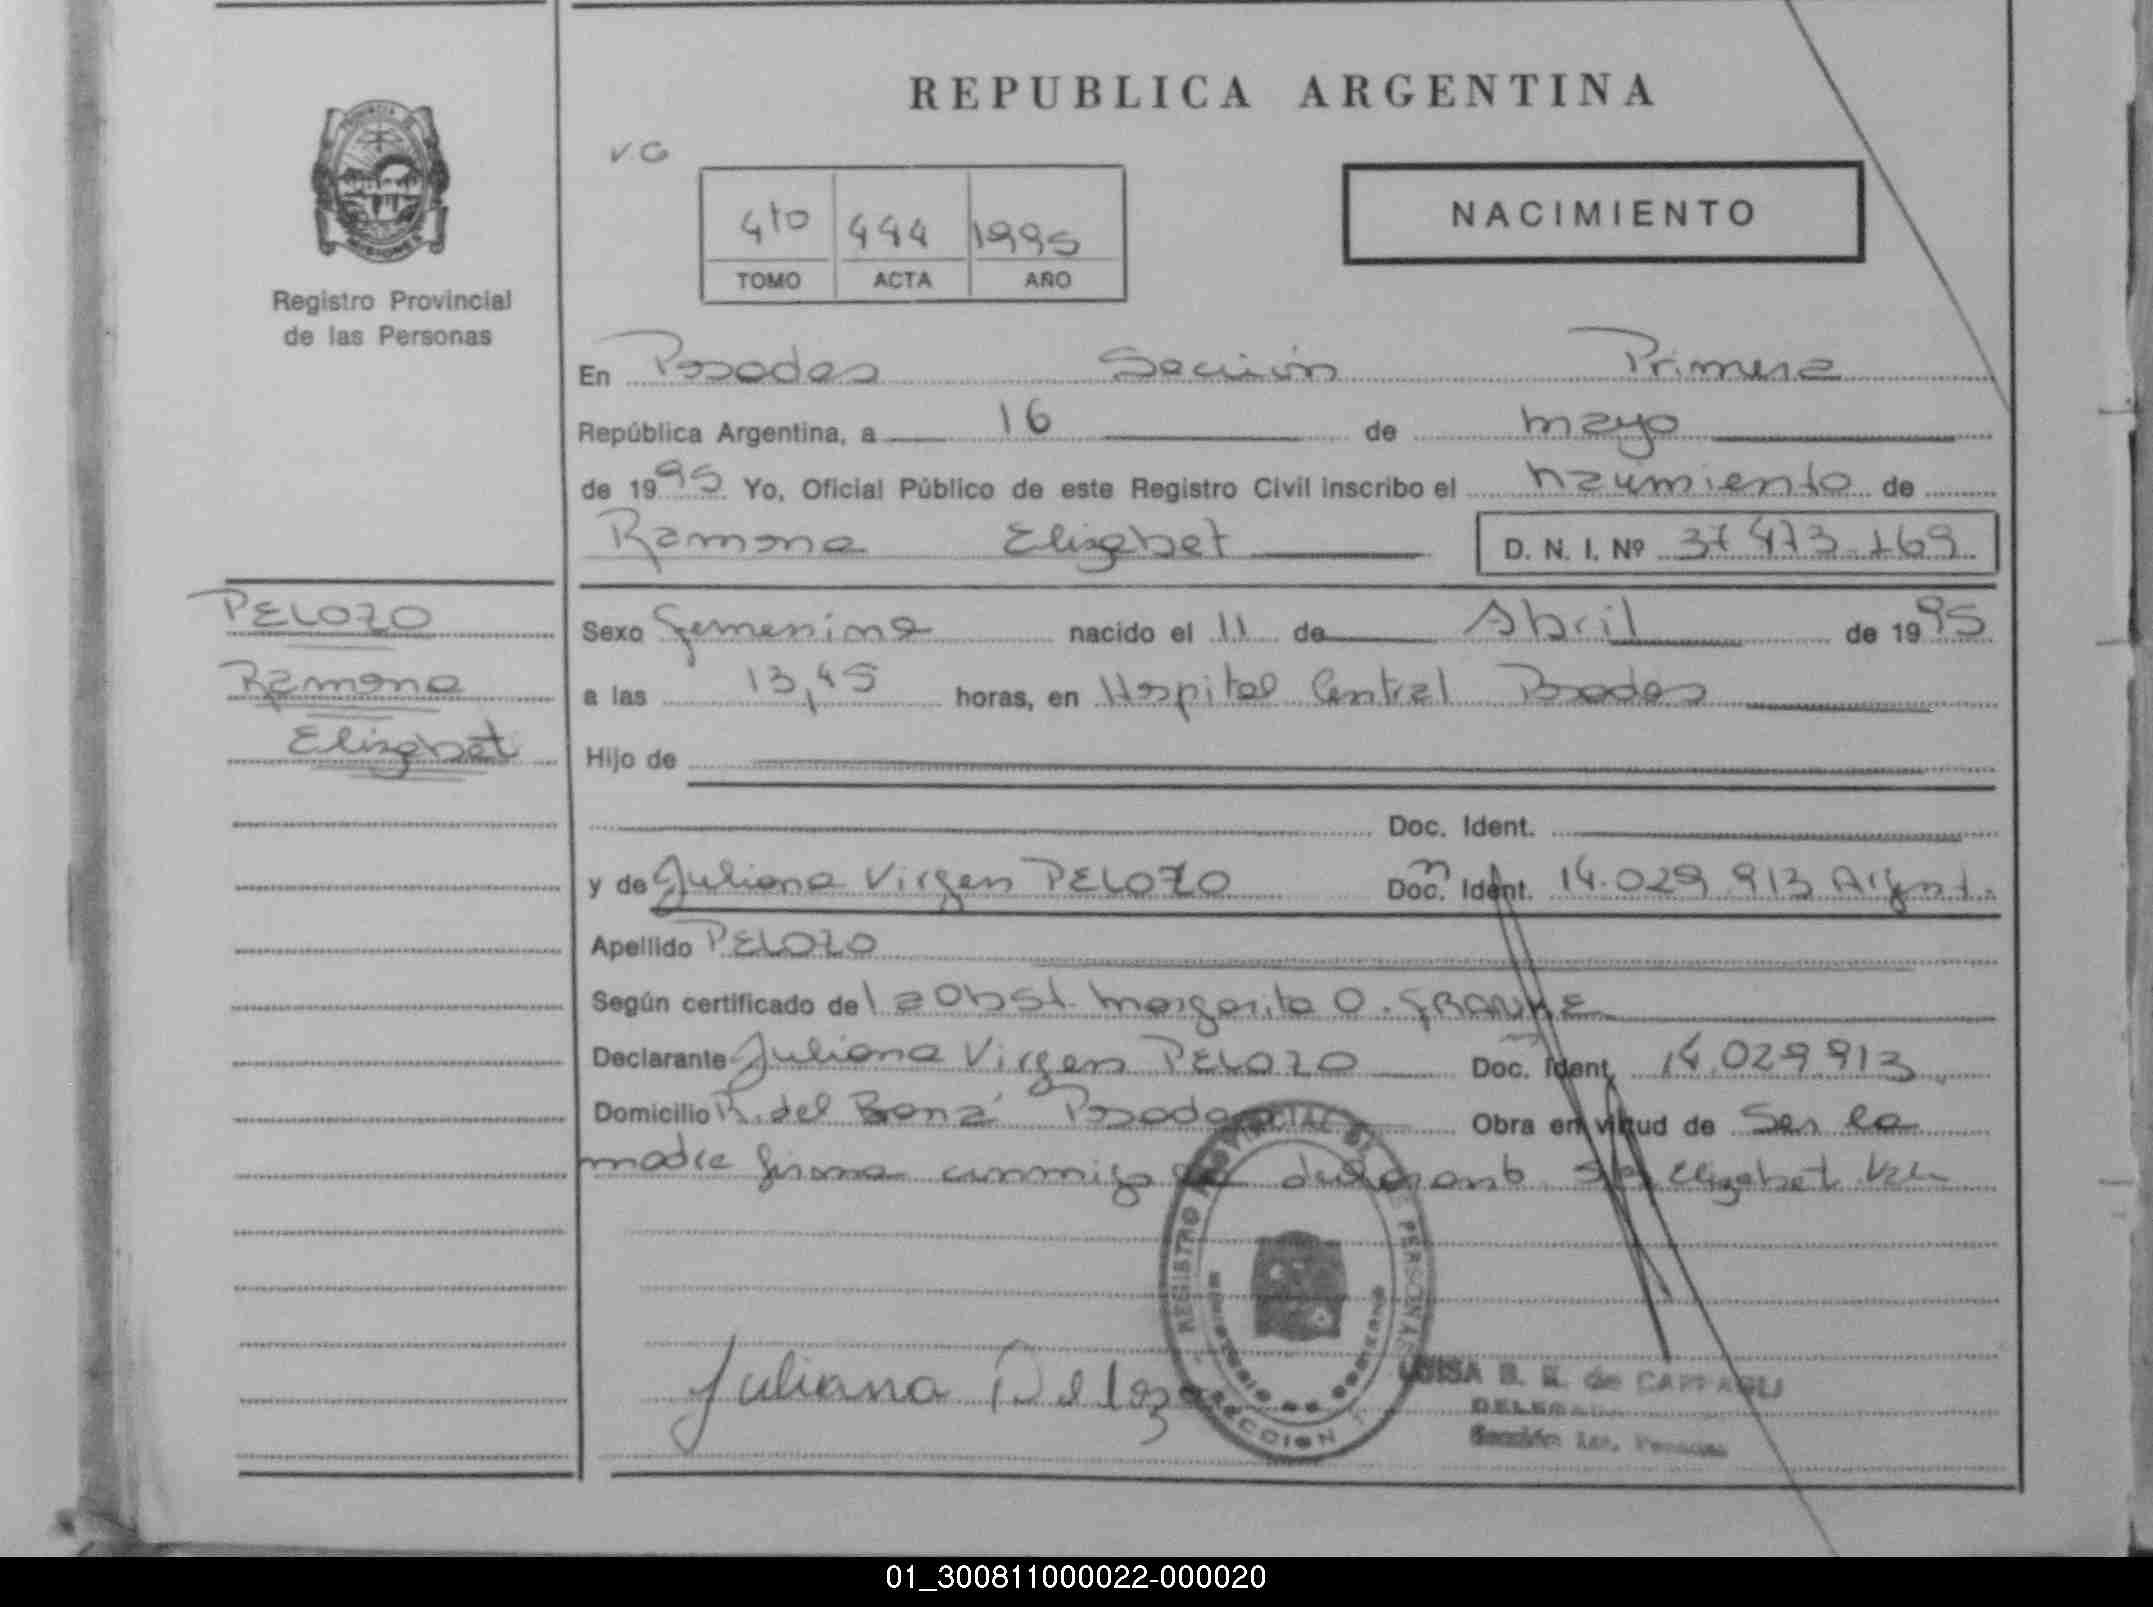 REPUBLICA ARGENTINA
V.G
NACIMIENTO
4to 444 1995
TOMO ACTA AÑO
Registro Provincial
de las Personas
En Posadas Sección Primera
República Argentina, a 16 de mayo
de 1995 Yo, Oficial Público de este Registro Civil inscribo el nacimiento de
Ramona Elizabet D. N. I. Nº 37 473.169
PELOZO
Ramona
Elizabet
Sexo femenino nacido el 11 de Abril de 1995
a las 13,45 horas, en Hospital Central Posadas
Hijo de
Doc. Ident.
y de Juliana Virgen PELOZO Doc. Ident. 14.029.913 Argent.
Apellido PELOZO
Según certificado de la Obst. Margarita O.
Declarante Juliana Virgen PELOZO Doc. Ident. 14.029.913
Domicilio Posadas Obra en virtud de ser la
madre firma conmigo declarante Elizabet Vale
Juliana Pelozo
REGISTRO PROVINCIAL DE PERSONAS
MINISTERIO DE GOBIERNO
SECCION
LUISA B. de
Sección 1ra. Posadas
01_300811000022-000020